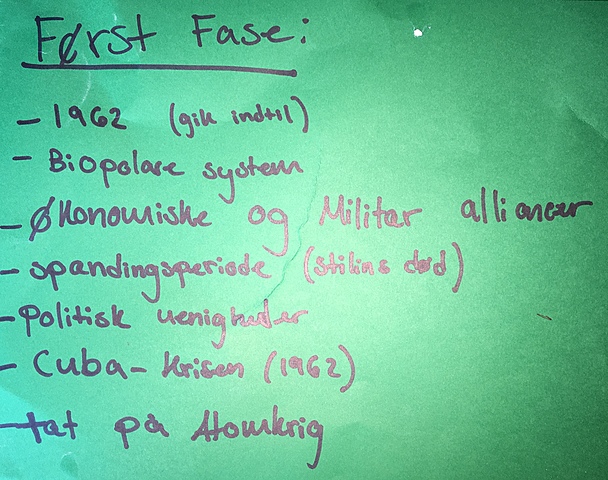 Først Fase:
- 1962 (gik indtil)
- Biopolare system
- Økonomiske og Militær alliancer
- spandingsperiode (stilins død)
- Politisk uenigheder
- Cuba-Krisen (1962)
- tæt på Atomkrig